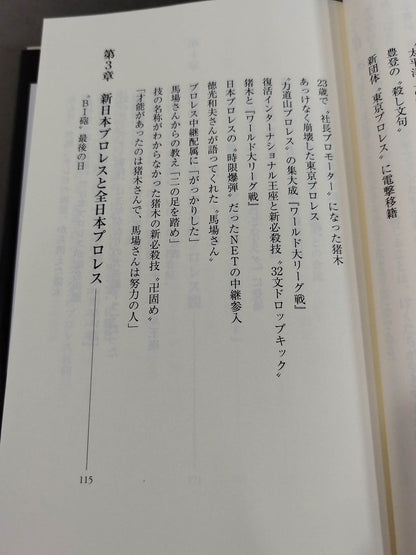 豊登の〝殺し文句〟
新団体〝東京プロレス〟に電撃移籍
23歳で〝社長プロモーター〟になった猪木
あっけなく崩壊した東京プロレス
〝力道山プロレス〟の集大成『ワールド大リーグ戦』
復活インターナショナル王座と新必殺技〝32文ドロップキック〟
猪木と『ワールド大リーグ戦』
日本プロレスの〝時限爆弾〟だったNETの中継参入
徳光和夫さんが語ってくれた〝馬場さん〟
プロレス中継配属に「がっかりした」
馬場さんからの教え「二の足を踏め」
技の名称がわからなかった猪木の新必殺技〝卍固め〟
「才能があったのは猪木さんで、馬場さんは努力の人」
第3章 新日本プロレスと全日本プロレス 115
〝BI砲〟最後の日